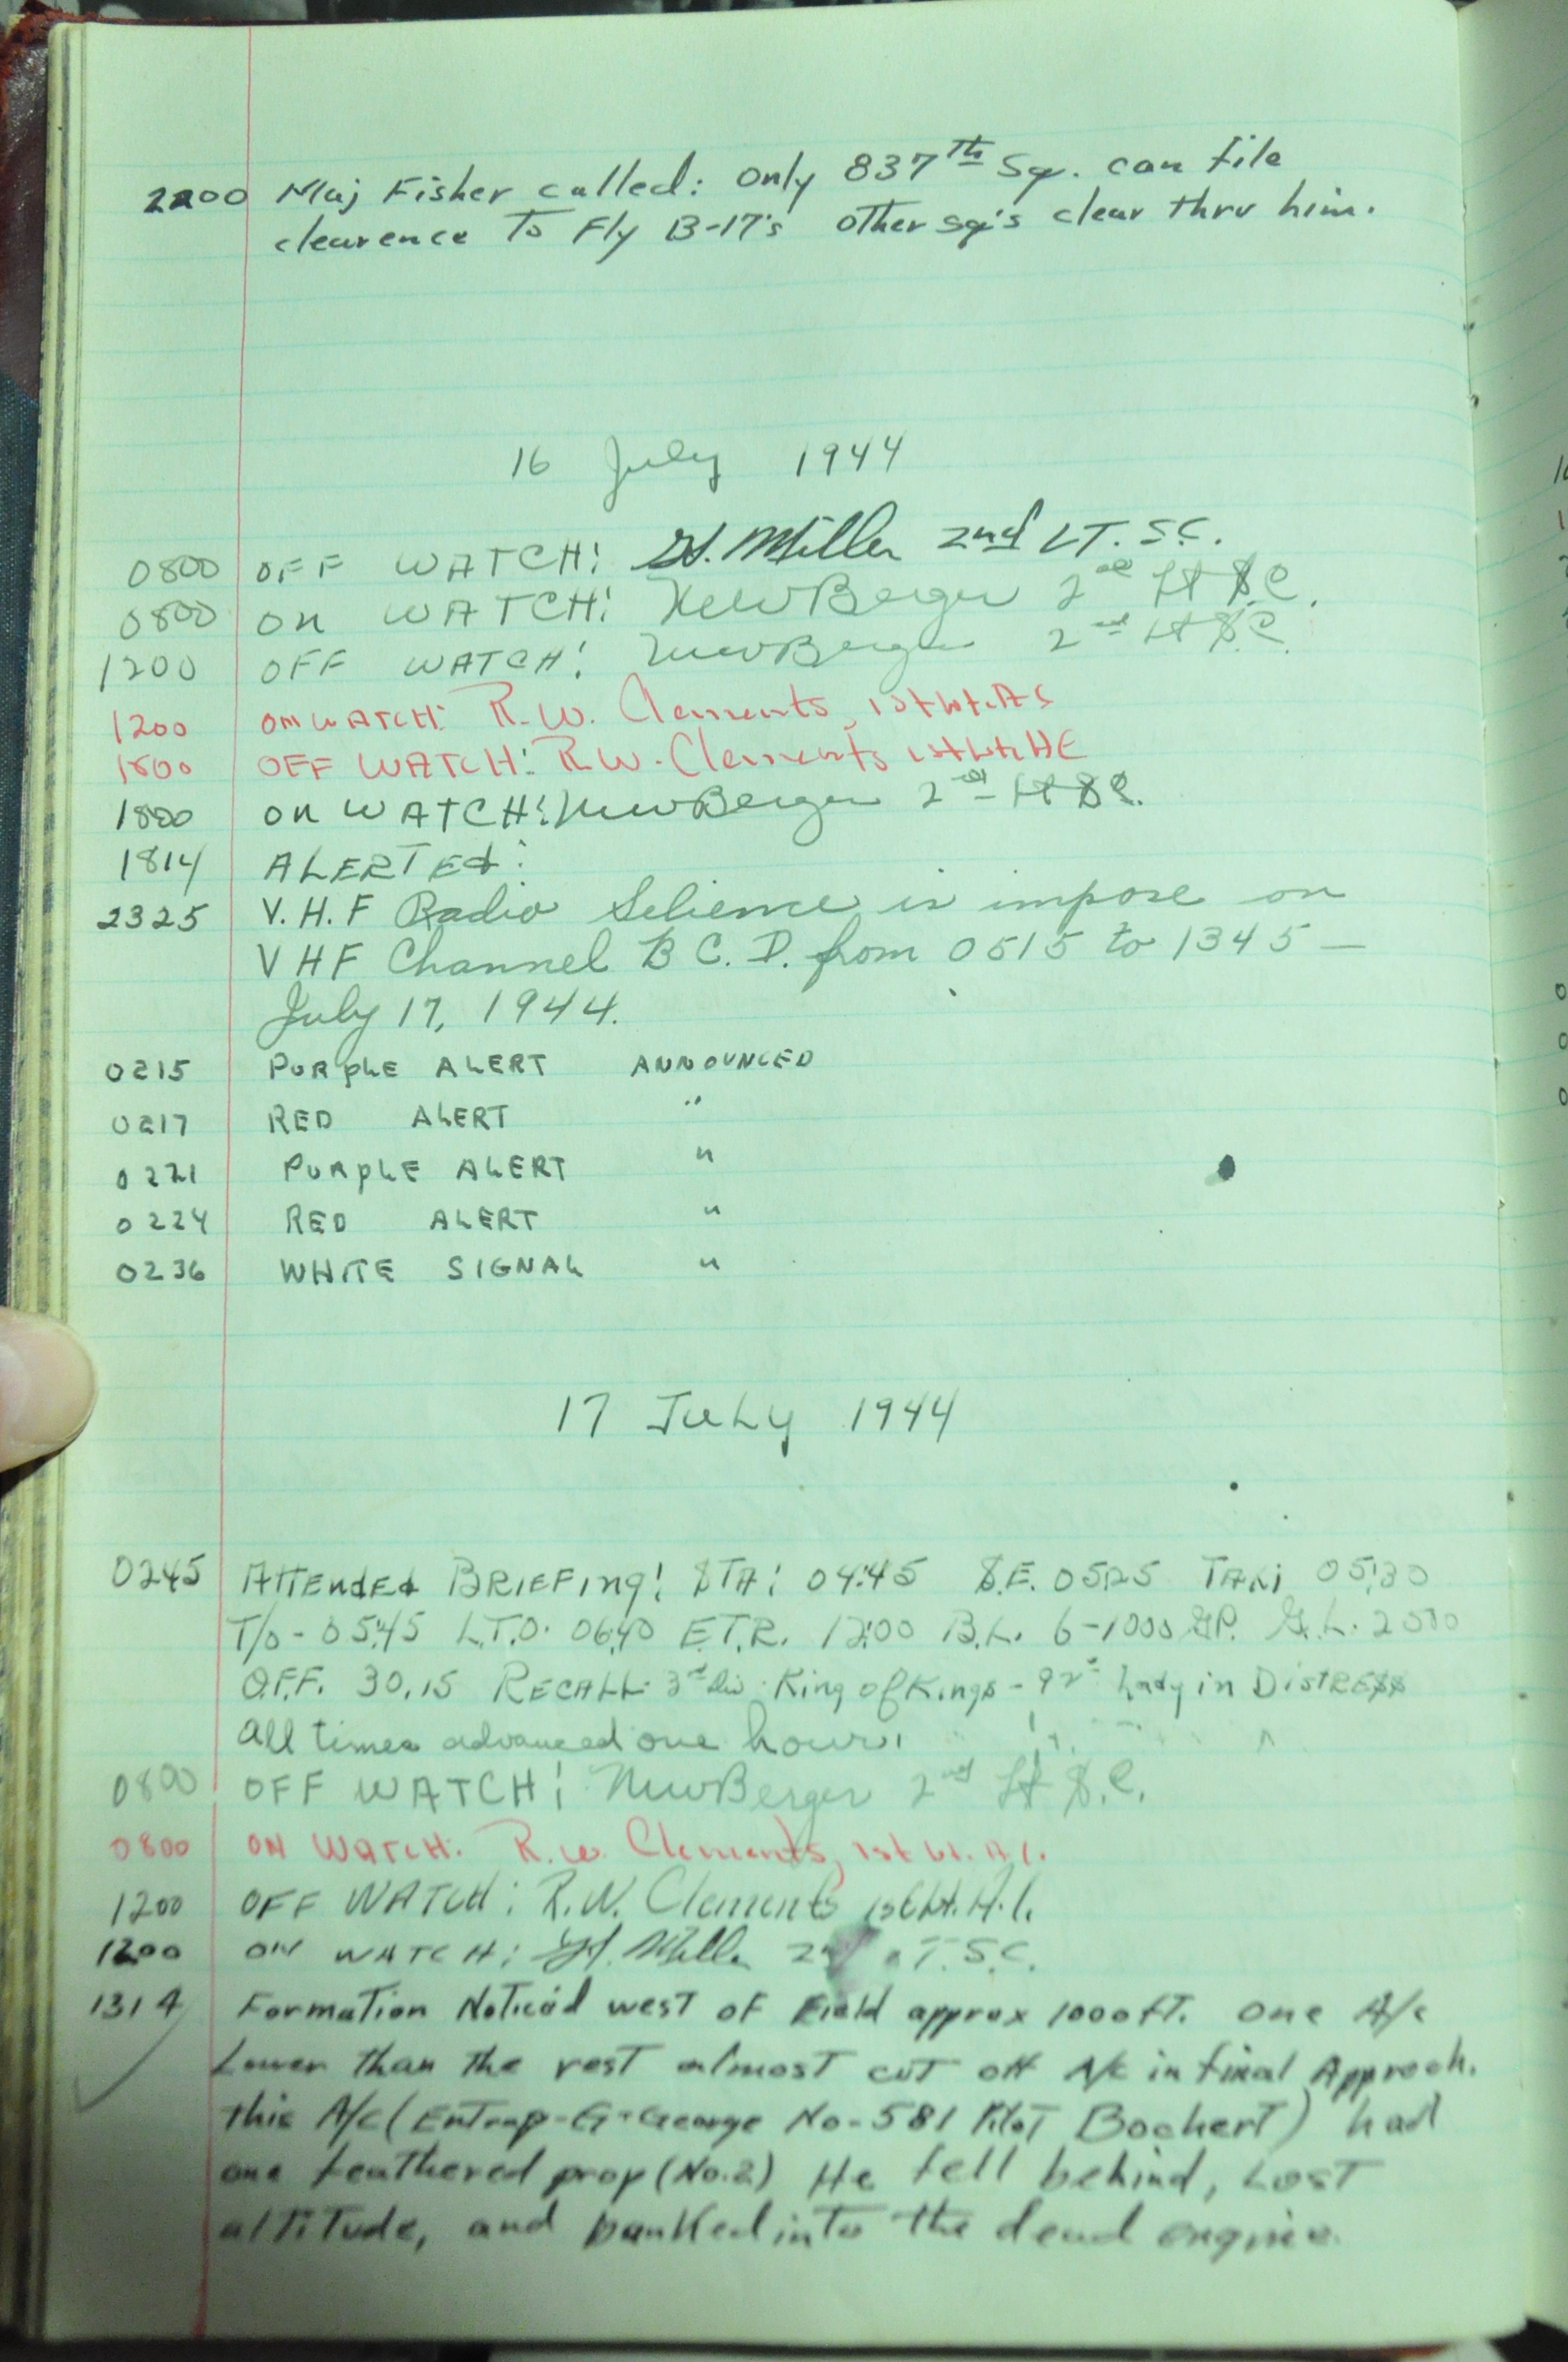 2200 Maj Fisher called: only 837th Sq. can file
clearence To Fly B-17's other sq's clear thru him.
16 July 1944
0800 OFF WATCH: H. Miller 2nd LT. S.C.
0800 On WATCH: NewBerger 2nd Lt S.C.
1200 OFF WATCH: NewBerger 2nd Lt S.C.
1200 ON WATCH: R.W. Clements, 1st Lt. AC
1800 OFF WATCH: R.W. Clements 1st Lt. AC
1800 On WATCH: NewBerger 2nd Lt S.C.
1814 ALERTEd:
2325 V.H.F Radio Selience is impose on
VHF Channel B C. D. from 0515 to 1345 —
July 17, 1944.
0215 PURPLE ALERT ANNOUNCED
0217 RED ALERT "
0221 PURPLE ALERT "
0224 RED ALERT "
0236 WHITE SIGNAL "
17 JuLy 1944
0245 ATTEndEd BRIEFIng! STA: 04:45 S.E. 0525 TAXi 05:30
T/o - 0545 L.T.O. 0640 E.T.R. 12:00 B.L. 6-1000 GP. G.L. 2500
O.F.F. 30,15 RECALL 3rd Div. King of Kings - 92nd Lady in DistRESS
All times advanced one hour.
0800 OFF WATCH: NewBerger 2nd Lt S.C.
0800 ON WATCH: R.W. Clements, 1st Lt. A.C.
1200 OFF WATCH: R.W. Clements 1st Lt. A.C.
1200 ON WATCH: H. Miller 2nd T. S.C.
1314 Formation Noticed west of Field approx 1000 ft. One A/c
Lower than the rest almost cut off A/c in final Approch.
this A/c (Entrap-G-George No-581 Pilot Bochert) had
one feathered prop (No.2) He fell behind, Lost
altitude, and banked into the dead engine.